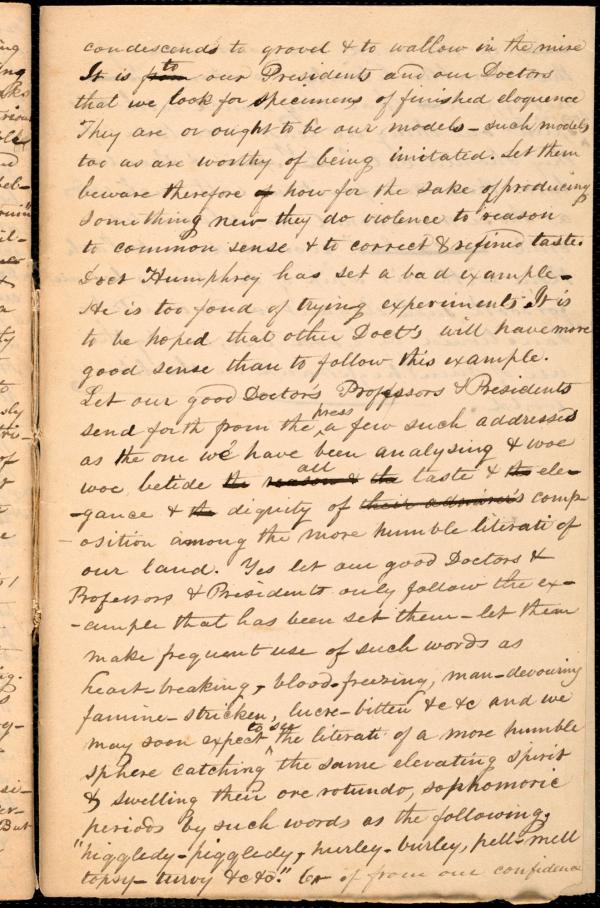 condescends to grovel & to wallow in the mire
It is from to our Presidents and our Doctors
that we look for specimens of finished eloquence
They are or ought to be our models - such models
too as are worthy of being imitated. Let them
beware therefore of how for the sake of producing
something new they do violence to reason
to common sense & to correct & refined taste.
Doct Humphrey has set a bad example -
He is too fond of trying experiments It is
to be hoped that other Doct's will have more
good sense than to follow this example.
Let our good Doctor's Professors & Presidents
send forth from the press a few such addresses
as the one we have been analysing & woe
woe betide the reason & the all taste & the ele-
-gance & the dignity of their admirer's comp
-osition among the more humble literati of
our land. Yes let our good Doctors &
Professors & Presidents only follow the ex-
-ample that has been set them - let them
make frequent use of such words as
heart-breaking, blood-freezing, man-devouring
famine-stricken, lucre-bitten &c &c and we
may soon expect to see the literati of a more humble
sphere catching the same elevating spirit
& swelling their ore rotundo, sophomoric
periods by such words as the following,
"higgledy-piggledy, hurley-burley, pell-mell
topsy-turvy &c &c." Or if from our confidence